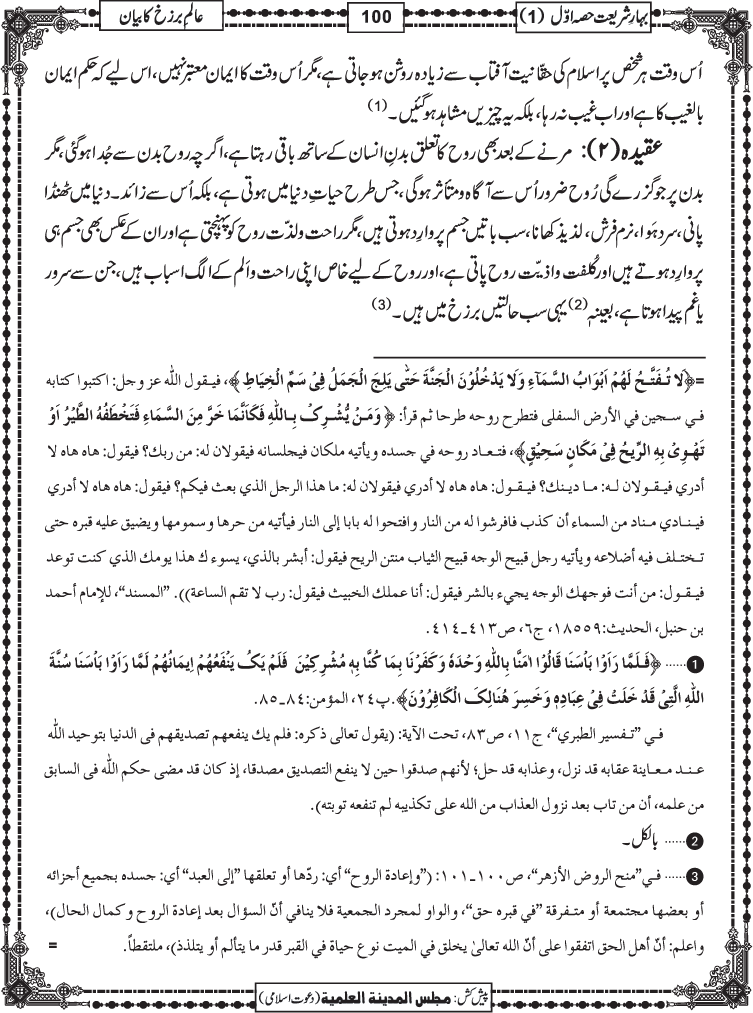 بہارِشریعت حصہ اوّل (1)
100
عالَمِ برزخ کا بیان
اُس وقت ہر شخص پر اسلام کی حقّانیت آفتاب سے زیادہ روشن ہو جاتی ہے، مگر اُس وقت کا ایمان معتبر نہیں، اس لیے کہ حکم ایمان
بالغیب کا ہے اور اب غیب نہ رہا، بلکہ یہ چیزیں مشاہد ہو گئیں۔ (1)
عقیدہ (۲): مرنے کے بعد بھی روح کا تعلق بدنِ انسان کے ساتھ باقی رہتا ہے، اگرچہ روح بدن سے جُدا ہو گئی، مگر
بدن پر جو گزرے گی رُوح ضرور اُس سے آگاہ و متأثر ہو گی، جس طرح حیاتِ دنیا میں ہوتی ہے، بلکہ اُس سے زائد۔ دنیا میں ٹھنڈا
پانی، سرد ہَوا، نرم فرش، لذیذ کھانا، سب باتیں جسم پر وارِد ہوتی ہیں، مگر راحت و لذّت روح کو پہنچتی ہے اور ان کے عکس بھی جسم ہی
پر وارِد ہوتے ہیں اور کُلفت و اذیّت روح پاتی ہے، اور روح کے لیے خاص اپنی راحت و اَلم کے الگ اسباب ہیں، جن سے سرور
یا غم پیدا ہوتا ہے، بعینہٖ (2) یہی سب حالتیں برزخ میں ہیں۔ (3)
=﴿لَا تُفَتَّحُ لَهُمْ اَبْوَابُ السَّمَآءِ وَلَا يَدْخُلُوْنَ الْجَنَّةَ حَتّٰى يَلِجَ الْجَمَلُ فِیْ سَمِّ الْخِيَاطِ﴾، فيقول الله عز وجل: اكتبوا كتابه
فـي سجين في الأرض السفلى فتطرح روحه طرحا ثم قرأ: ﴿وَمَنْ يُّشْرِكْ بِاللّٰهِ فَكَاَنَّمَا خَرَّ مِنَ السَّمَآءِ فَتَخْطَفُهُ الطَّيْرُ اَوْ
تَهْوِىْ بِهِ الرِّيْحُ فِیْ مَكَانٍ سَحِيْقٍ﴾، فتـعـاد روحه في جسده ويأتيه ملكان فيجلسانه فيقولان له: من ربك؟ فيقول: هاه هاه لا
أدري فيـقـولان لـه: مـا ديـنك؟ فيـقـول: هاه هاه لا أدري فيقولان له: ما هذا الرجل الذي بعث فيكم؟ فيقول: هاه هاه لا أدري
فيـنـادي مناد من السماء أن كذب فافرشوا له من النار وافتحوا له بابا إلى النار فيأتيه من حرها وسمومها ويضيق عليه قبره حتى
تـختـلـف فيه أضلاعه ويأتيه رجل قبيح الوجه قبيح الثياب منتن الريح فيقول: أبشر بالذي، يسوء ك هذا يومك الذي كنت توعد
فيـقـول: من أنت فوجهك الوجه يجيء بالشر فيقول: أنا عملك الخبيث فيقول: رب لا تقم الساعة)). ”المسند“، للإمام أحمد
بن حنبل، الحديث: ۱۸۵۵۹، ج۶، ص۴۱۳ـ۴۱۴.
1...... ﴿فَلَمَّا رَاَوْا بَاْسَنَا قَالُوْا اٰمَنَّا بِاللّٰهِ وَحْدَهٗ وَكَفَرْنَا بِمَا كُنَّا بِهٖ مُشْرِكِيْنَ فَلَمْ يَكُ يَنْفَعُهُمْ اِيمَانُهُمْ لَمَّا رَاَوْا بَاْسَنَا سُنَّةَ
اللّٰهِ الَّتِیْ قَدْ خَلَتْ فِیْ عِبَادِهٖ وَخَسِرَ هُنَالِكَ الْكَافِرُوْنَ﴾. پ۲۴، المؤمن: ۸۴ـ۸۵.
فـي ”تـفسير الطبري“، ج۱۱، ص۸۳، تحت الآية: (يقول تعالى ذكره: فلم يك ينفعهم تصديقهم فى الدنيا بتوحيد الله
عـنـد مـعـاينة عقابه قد نزل، وعذابه قد حل؛ لأنهم صدقوا حين لا ينفع التصديق مصدقا، إذ كان قد مضى حكم الله فى السابق
من علمه، أن من تاب بعد نزول العذاب من الله على تكذيبه لم تنفعه توبته).
2...... بالکل۔
3...... فـي”منح الروض الأزهر“، ص۱۰۰ـ۱۰۱: (”وإعادة الروح“ أي: ردّها أو تعلقها ”إلى العبد“ أي: جسده بجميع أجزائه
أو بعضها مجتمعة أو متـفرقة ”في قبره حق“، والواو لمجرد الجمعية فلا ينافي أنّ السؤال بعد إعادة الروح وكمال الحال)،
واعلم: أنّ أهل الحق اتفقوا على أنّ الله تعالىٰ يخلق في الميت نوع حياة في القبر قدر ما يتألم أو يتلذذ)، ملتقطاً. =
پیش کش: مجلس المدينة العلمية (دعوت اسلامی)